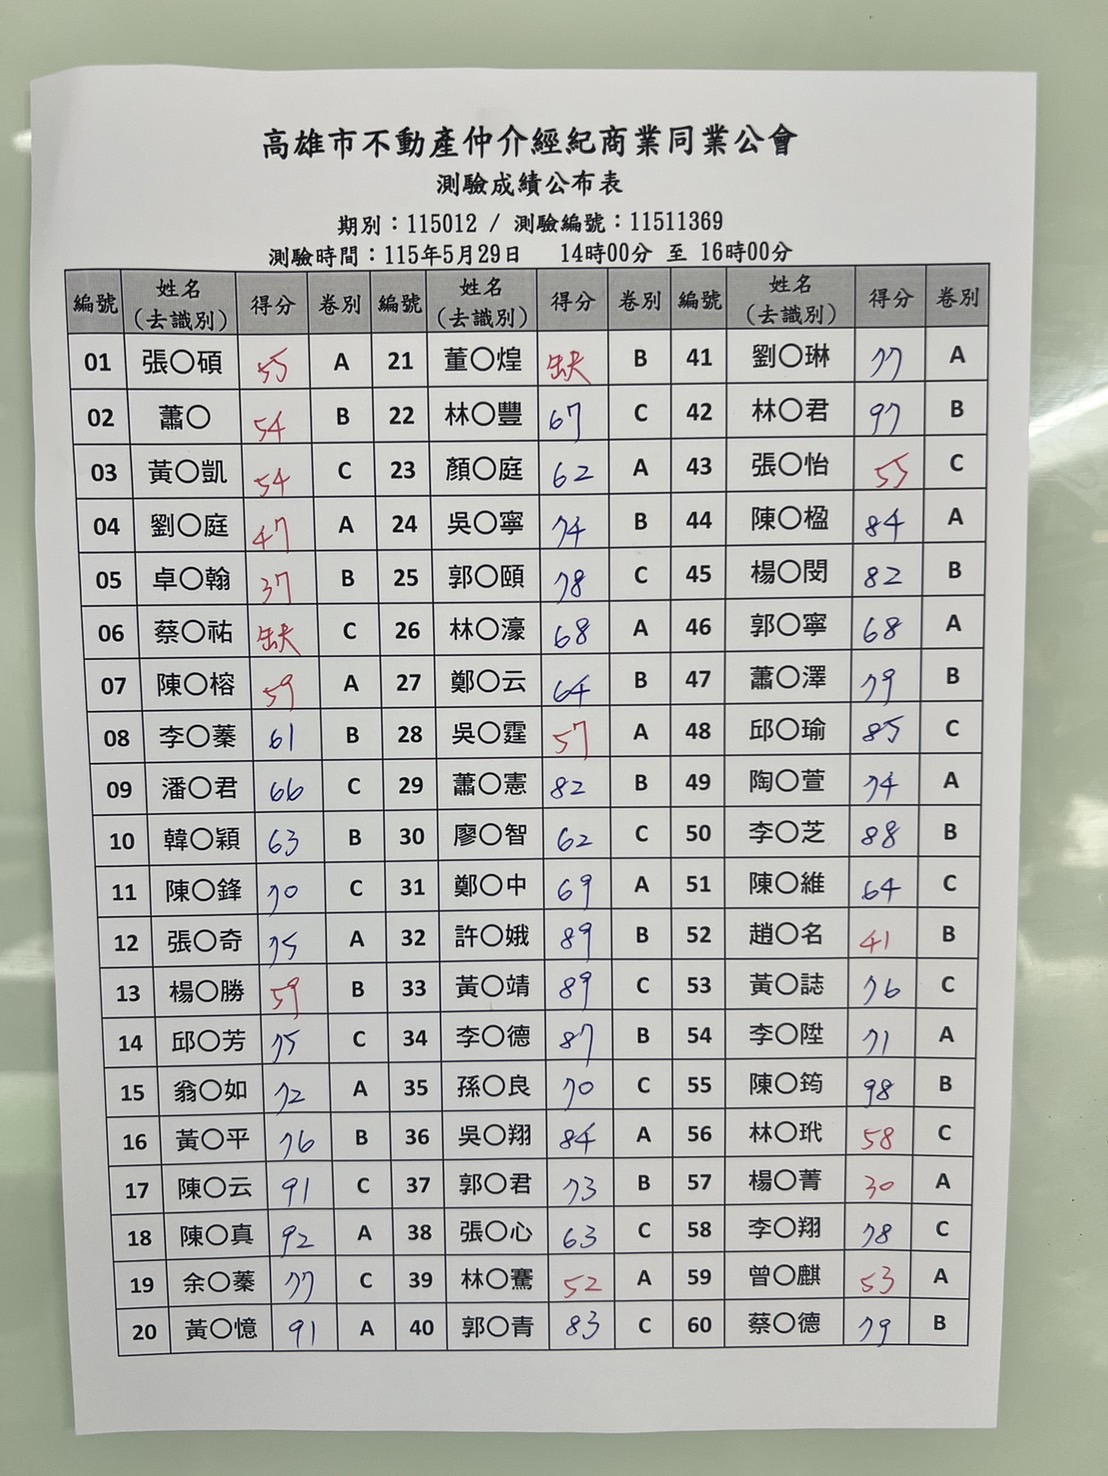 高雄市不動產仲介經紀商業同業公會
測驗成績公布表
期別：115012 / 測驗編號：11511369
測驗時間：115年5月29日 14時00分 至 16時00分
編號 姓名（去識別） 得分 卷別 編號 姓名（去識別） 得分 卷別 編號 姓名（去識別） 得分 卷別
01 張〇碩 55 A 21 董〇煌 缺 B 41 劉〇琳 77 A
02 蕭〇 54 B 22 林〇豐 67 C 42 林〇君 97 B
03 黃〇凱 54 C 23 顏〇庭 62 A 43 張〇怡 55 C
04 劉〇庭 47 A 24 吳〇寧 74 B 44 陳〇楹 84 A
05 卓〇翰 37 B 25 郭〇頤 78 C 45 楊〇閔 82 B
06 蔡〇祐 缺 C 26 林〇濠 68 A 46 郭〇寧 68 A
07 陳〇榕 59 A 27 鄭〇云 64 B 47 蕭〇澤 79 B
08 李〇蓁 61 B 28 吳〇霆 57 A 48 邱〇瑜 85 C
09 潘〇君 66 C 29 蕭〇憲 82 B 49 陶〇萱 74 A
10 韓〇穎 63 B 30 廖〇智 62 C 50 李〇芝 88 B
11 陳〇鋒 70 C 31 鄭〇中 69 A 51 陳〇維 64 C
12 張〇奇 75 A 32 許〇娥 89 B 52 趙〇名 41 B
13 楊〇勝 59 B 33 黃〇靖 89 C 53 黃〇誌 76 C
14 邱〇芳 75 C 34 李〇德 87 B 54 李〇陞 71 A
15 翁〇如 72 A 35 孫〇良 70 C 55 陳〇筠 98 B
16 黃〇平 76 B 36 吳〇翔 84 A 56 林〇玳 58 C
17 陳〇云 91 C 37 郭〇君 73 B 57 楊〇菁 30 A
18 陳〇真 92 A 38 張〇心 63 C 58 李〇翔 78 C
19 余〇蓁 77 C 39 林〇騫 52 A 59 曾〇麒 53 A
20 黃〇憶 91 A 40 郭〇青 83 C 60 蔡〇德 79 B